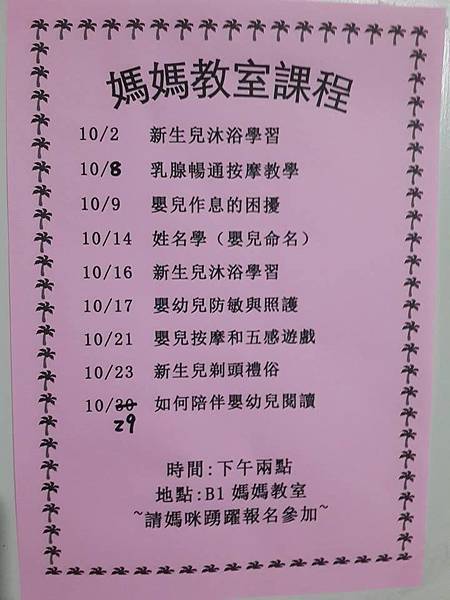 媽媽教室課程
10/2 新生兒沐浴學習
10/8 乳腺暢通按摩教學
10/9 嬰兒作息的困擾
10/14 姓名學（嬰兒命名）
10/16 新生兒沐浴學習
10/17 嬰幼兒防敏與照護
10/21 嬰兒按摩和五感遊戲
10/23 新生兒剃頭禮俗
10/30 如何陪伴嬰幼兒閱讀
29
時間:下午兩點
地點:B1 媽媽教室
~請媽咪踴躍報名參加~